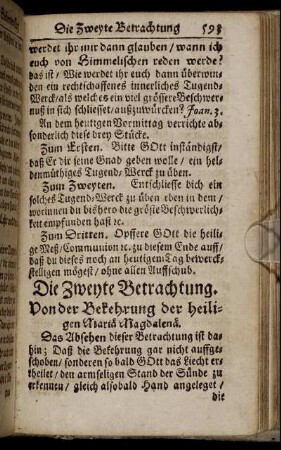 Die Zweyte Betrachtung 593
werdet ihr mir dann glauben / wann ich
euch von Himmelischen reden werde?
das ist / Wie werdet ihr euch dann überwin-
den ein rechtschaffenes innerliches Tugend-
Werck / als welches ein viel grössere Beschwer-
nuß in sich schliesset / außzuwürcken? Joan. 3.
An dem heutigen Vormittag verrichte ab-
sonderlich diese drey Stücke.
Zum Ersten. Bitte GOtt inständigst /
daß Er dir seine Gnad geben wolle / ein hel-
denmüthiges Tugend-Werck zu üben.
Zum Zweyten. Entschliesse dich ein
solches Tugend-Werck zu üben eben in dem /
worinnen du bishero die gröste Beschwerlich-
keit empfunden hast ꝛc.
Zum Dritten. Opffere GOtt die heili-
ge Meß / Communion ꝛc. zu diesem Ende auff /
daß du dieses noch an heutigem Tag bewerck-
stelligen mögest / ohne allen Auffschub.
Die Zweyte Betrachtung.
Von der Bekehrung der heili-
gen Mariä Magdalenä.
Das Absehen dieser Betrachtung ist da-
hin; Daß die Bekehrung gar nicht auffge-
schoben / sonderen so bald GOtt das Liecht er-
theilet / den armseligen Stand der Sünde zu
erkennen / gleich alsobald Hand angeleget /
die